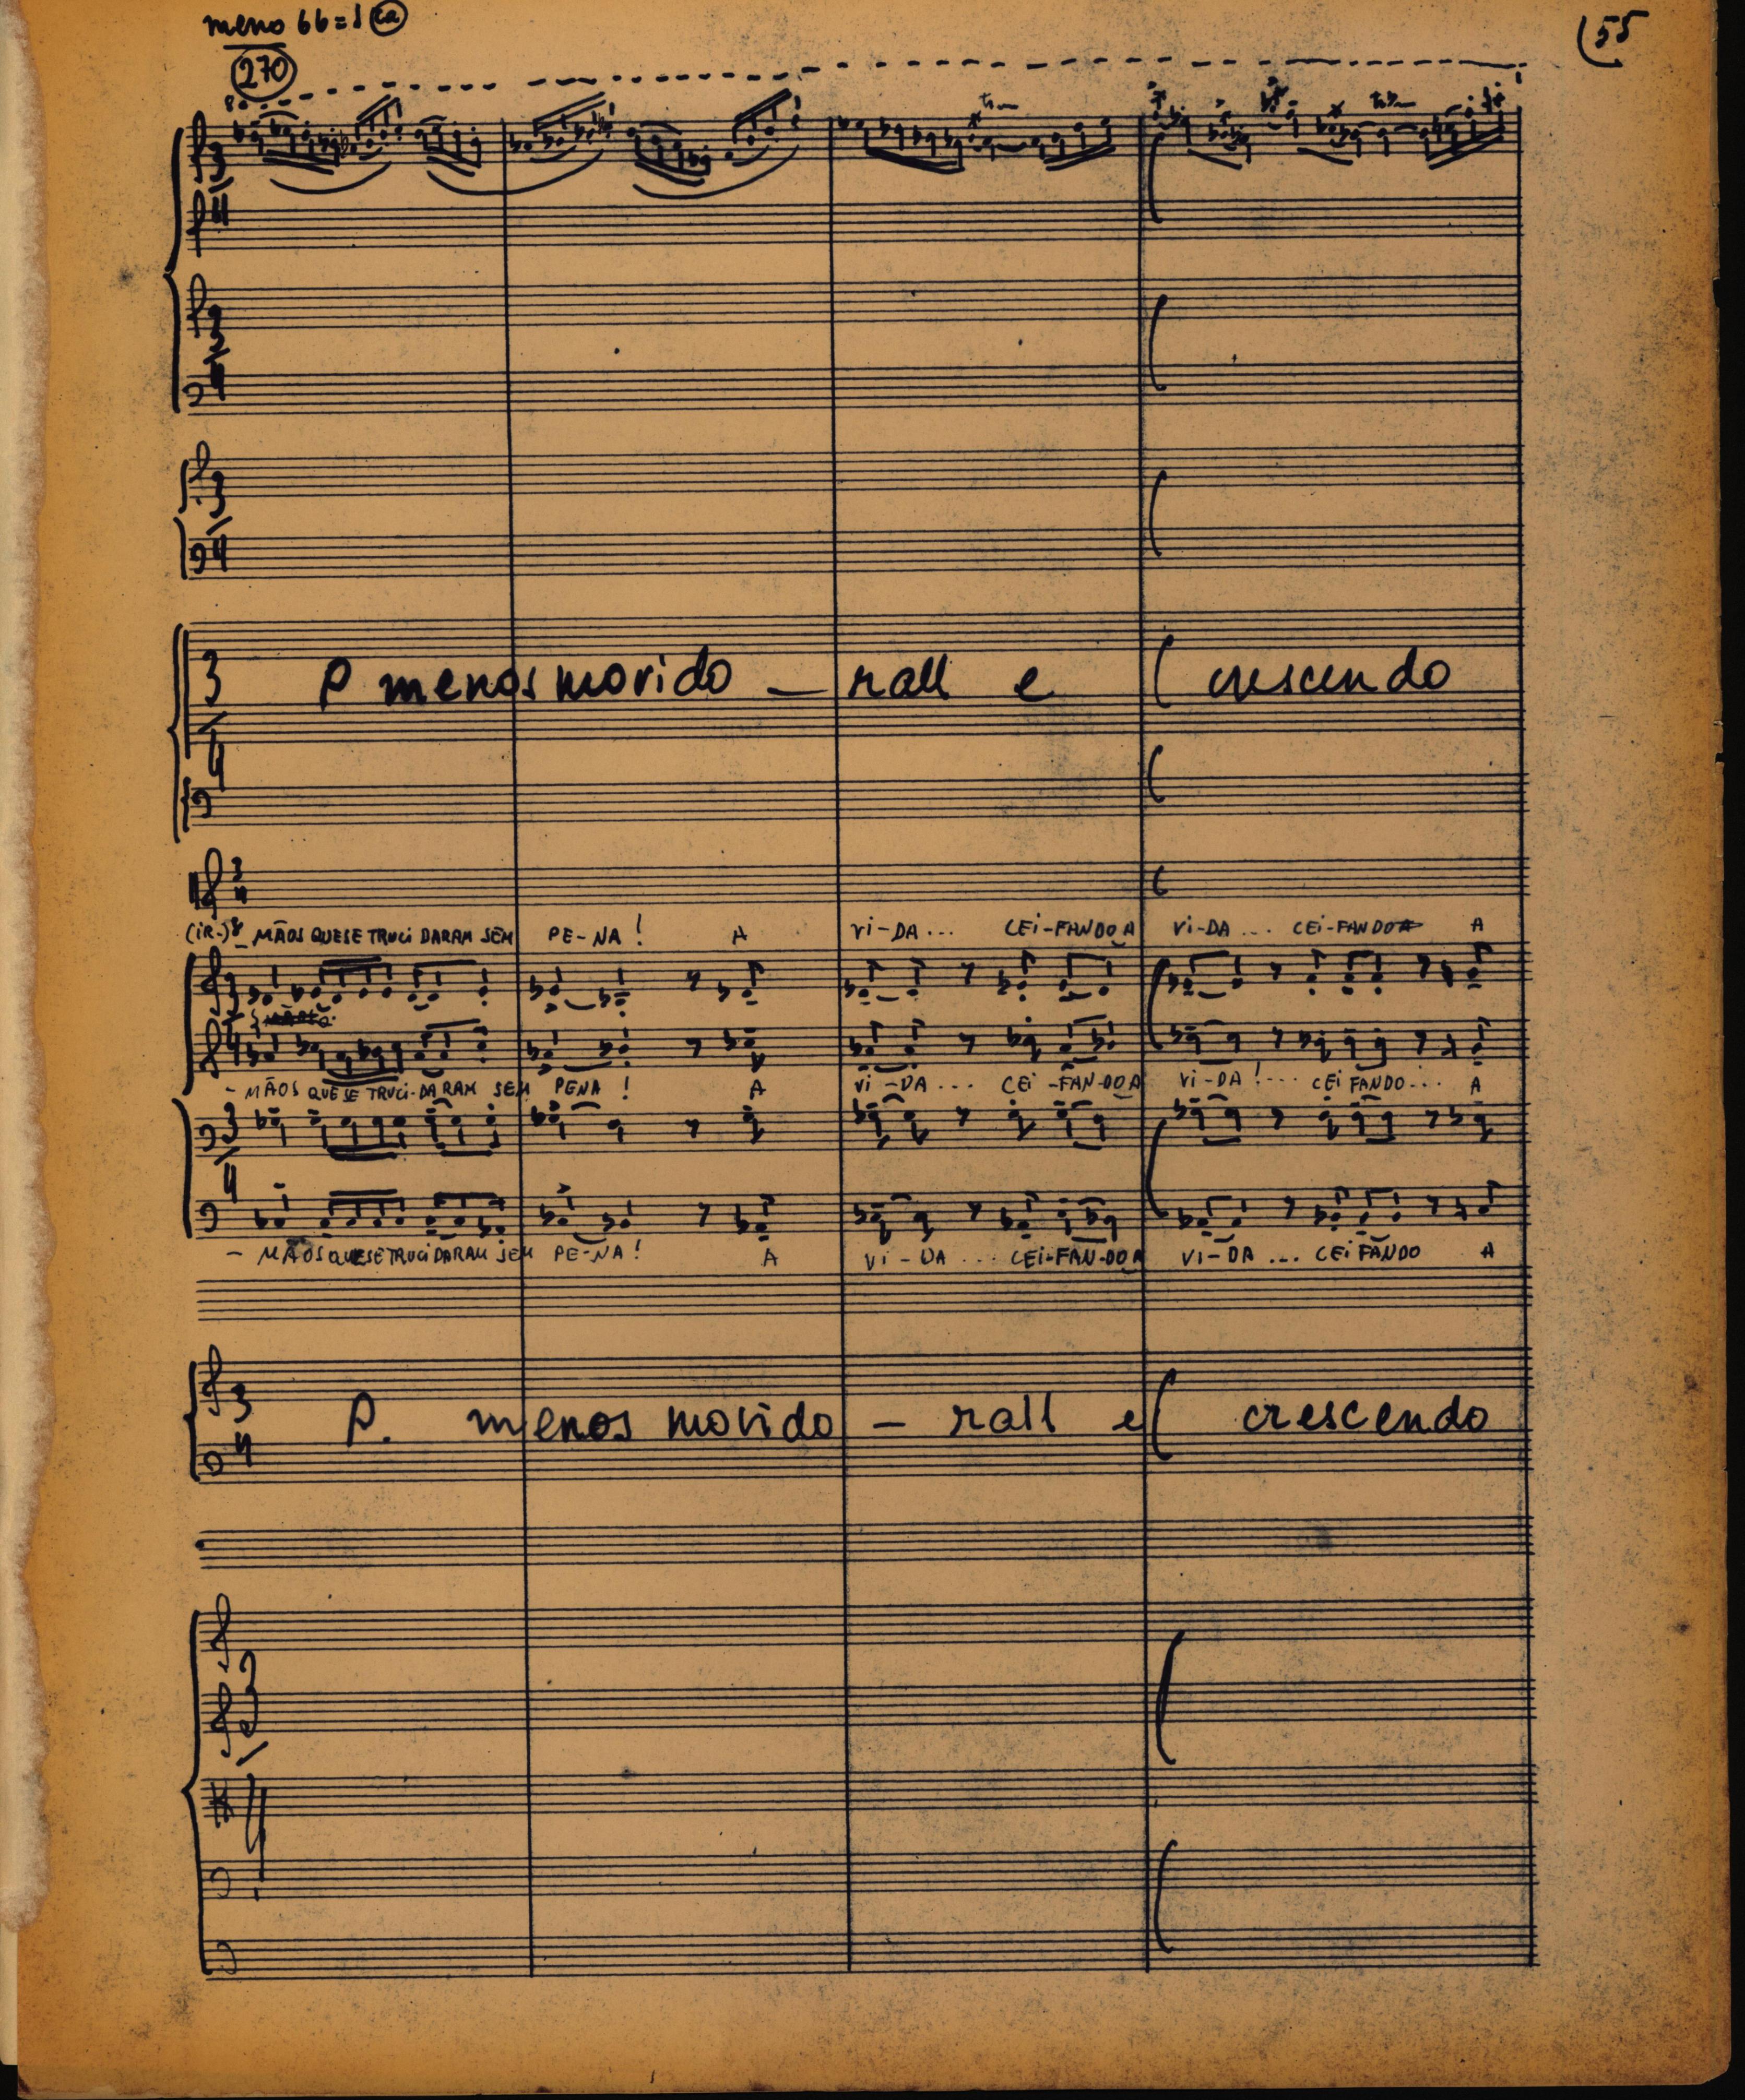 meno 66=♩ ca
(55
270
8a
tr
tr
3
4
p menos movido — rall e crescendo
(iR-) - MÃOS QUE SE TRUCI DARAM SEM PE-NA! A Vi-DA... CEi-FANDO A Vi-DA... CEi-FANDO A A
- MÃOS QUE SE TRUCI-DARAM SEM PENA! A Vi-DA... CEi-FAN-DO A Vi-DA!... CEi FANDO... A
- MÃOS QUE SE TRUCI DARAM SEM PE-NA! A Vi-DA... CEi-FAN-DO A Vi-DA... CEi FANDO A
3
4
P. menos movido — rall e crescendo
3
4